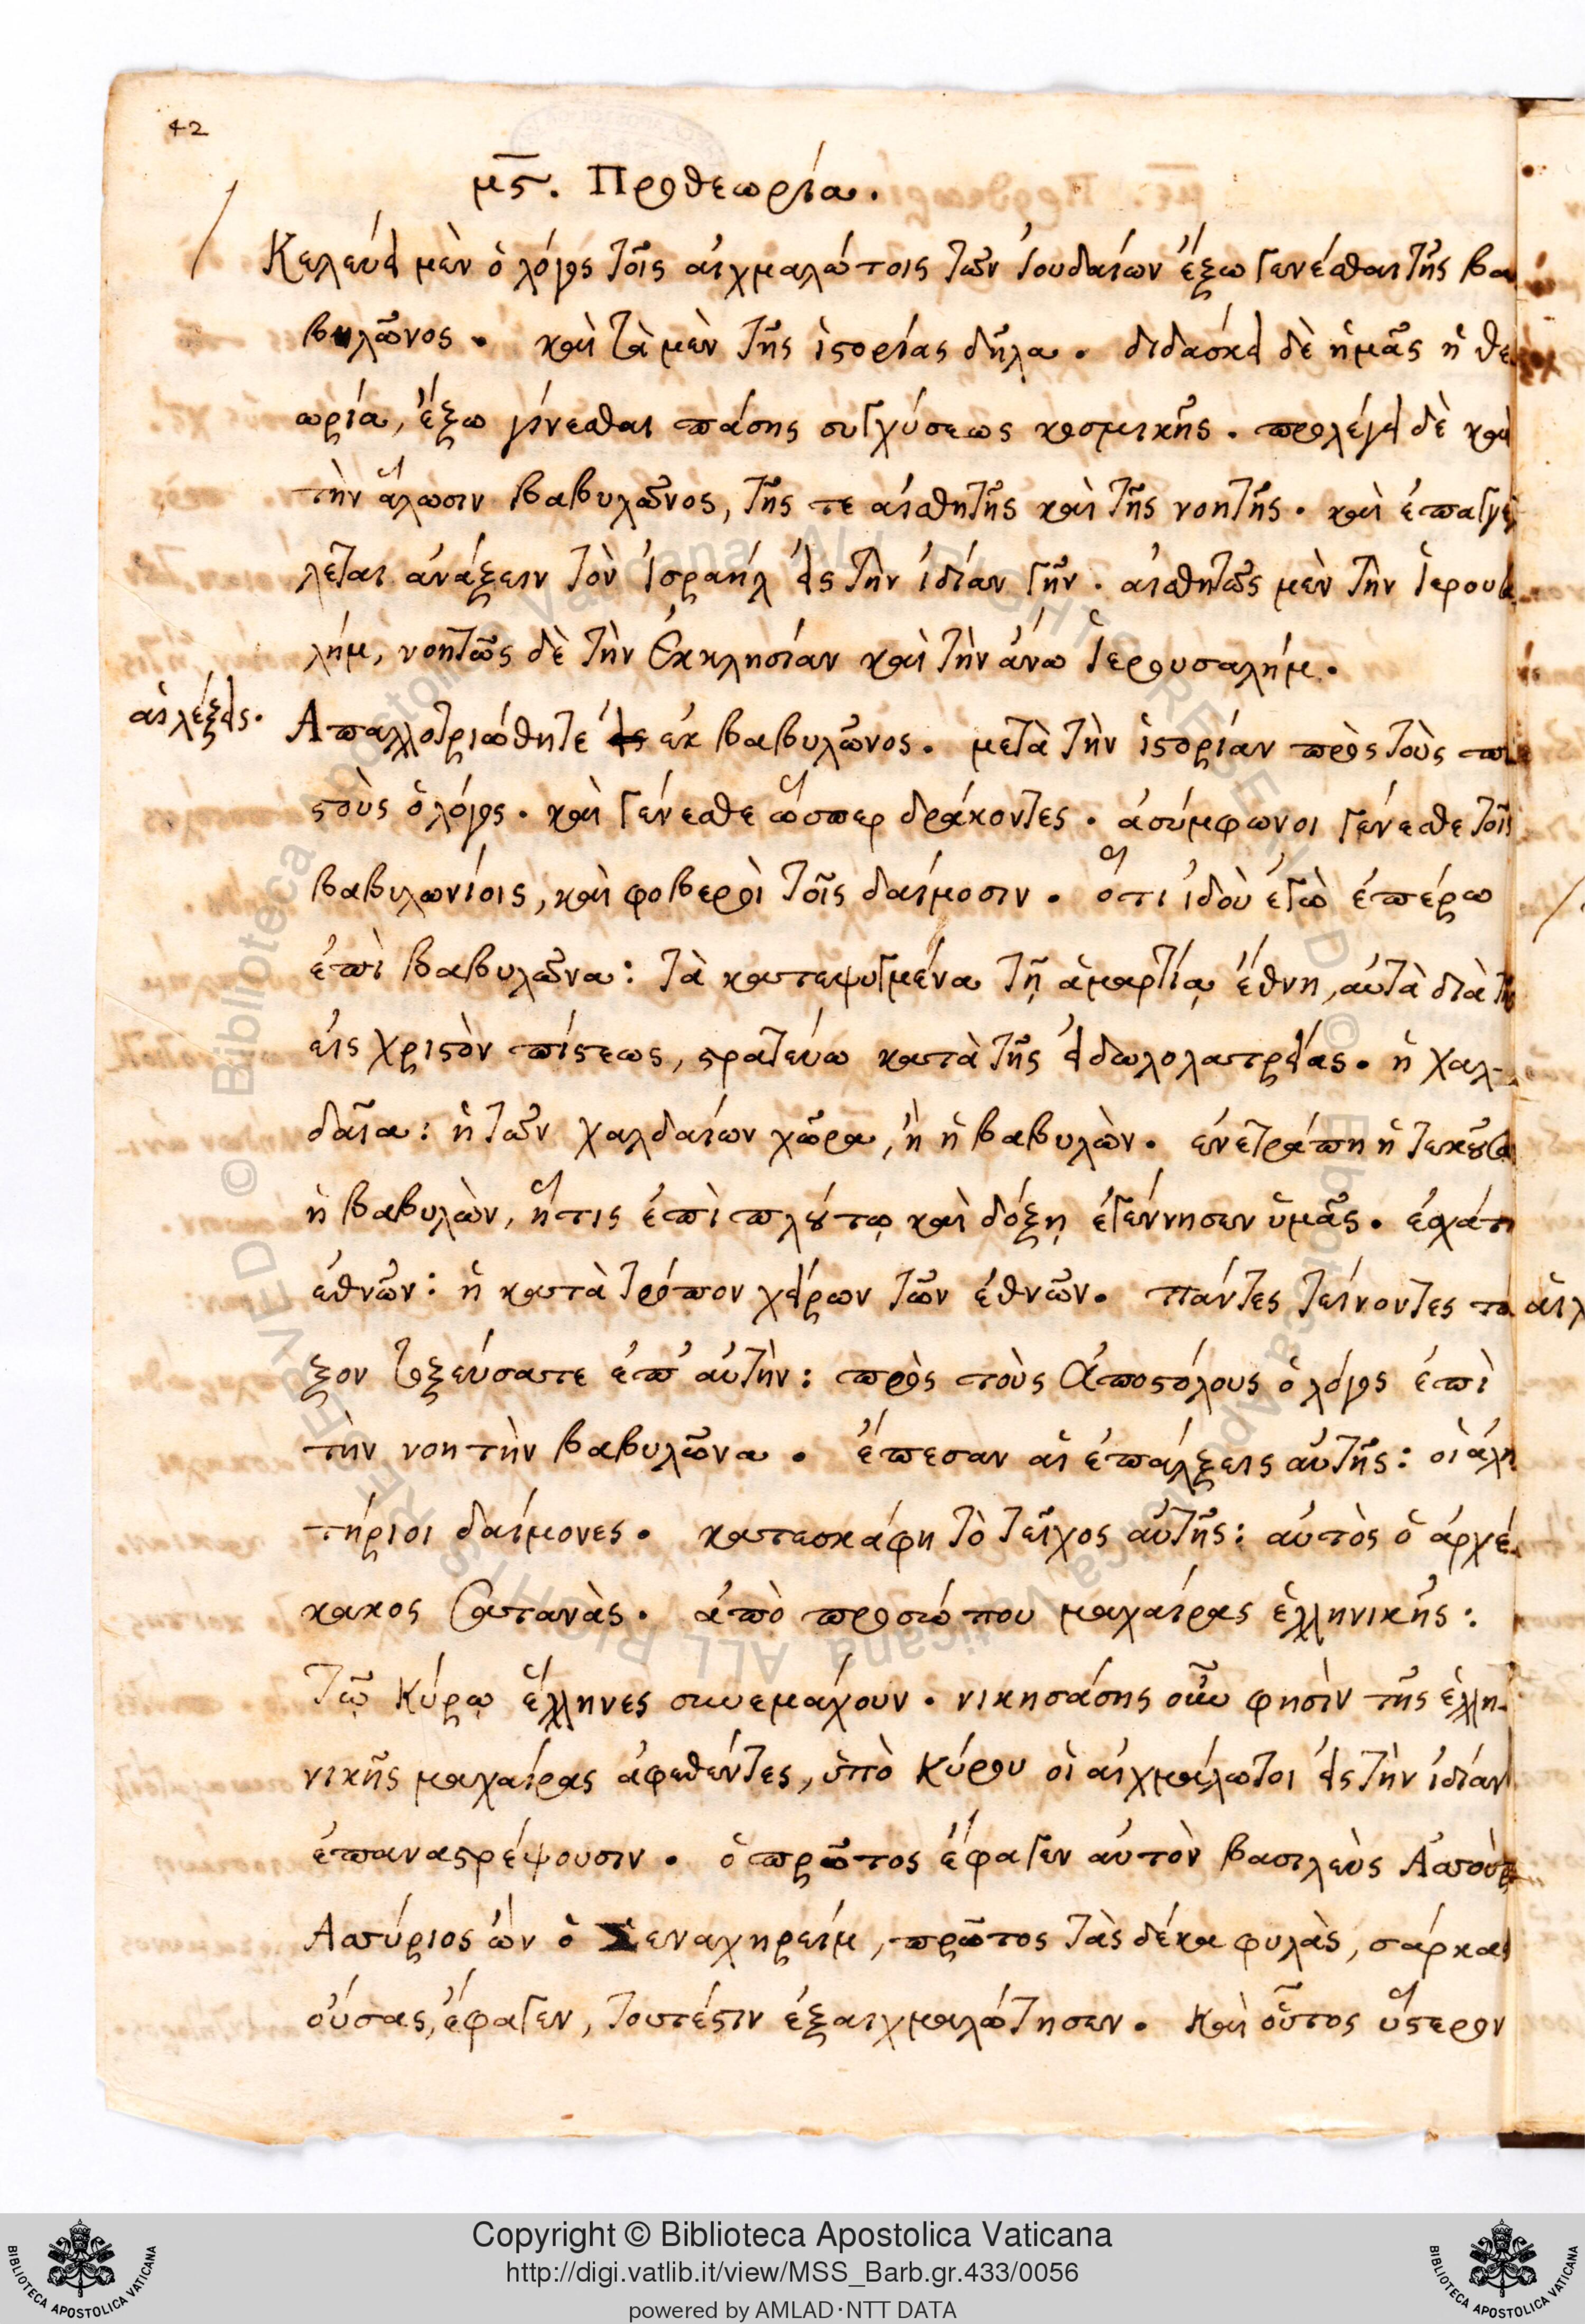 42
μϛ. Προθεωρία.
Κελεύει μὲν ὁ λόγος τοῖς αἰχμαλώτοις τῶν Ἰουδαίων ἔξω γενέσθαι τῆς βα
βυλῶνος. καὶ τὰ μὲν τῆς ἱστορίας δῆλα. διδάσκει δὲ ἡμᾶς ἡ θε
ωρία, ἔξω γίνεσθαι πάσης συγχύσεως κοσμικῆς. προλέγει δὲ καὶ
τὴν ἅλωσιν βαβυλῶνος, τῆς τε αἰσθητῆς καὶ τῆς νοητῆς. καὶ ἐπαγγέ
λεται ἀνάξειν τὸν Ἰσραὴλ εἰς τὴν ἰδίαν γῆν. αἰσθητῶς μὲν τὴν Ἱερουσα
λήμ, νοητῶς δὲ τὴν Ἐκκλησίαν καὶ τὴν ἄνω Ἱερουσαλήμ.
αἱ λέξεις.
Ἀπαλλοτριώθητε ἐκ βαβυλῶνος. μετὰ τὴν ἱστορίαν πρὸς τοὺς πι
στοὺς ὁ λόγος. καὶ γένεσθε ὥσπερ δράκοντες. ἀσύμφωνοι γένεσθε τοῖς
βαβυλωνίοις, καὶ φοβεροὶ τοῖς δαίμοσιν. ὅτι ἰδοὺ ἐγὼ ἐπέρω
ἐπὶ βαβυλῶνα: τὰ κατεψυγμένα τῇ ἁμαρτίᾳ ἔθνη, αὐτὰ διὰ τῆς
εἰς χριστὸν πίστεως, στρατεύω κατὰ τῆς εἰδωλολατρείας. ἡ χαλ-
δαῖα: ἡ τῶν χαλδαίων χῶρα, ἢ ἡ βαβυλὼν. ἐνετράπη ἡ τεκοῦσα
ἡ βαβυλὼν, ἥτις ἐπὶ πλούτῳ καὶ δόξῃ ἐγέννησεν ὑμᾶς. ἐσχάτη
ἐθνῶν: ἡ κατὰ τρόπον χείρων τῶν ἐθνῶν. πάντες τείνοντες τό
ξον τοξεύσατε ἐπ' αὐτὴν: πρὸς τοὺς Ἀποστόλους ὁ λόγος ἐπὶ
τὴν νοητὴν βαβυλῶνα. ἔπεσαν αἱ ἐπάλξεις αὐτῆς: οἱ ἀλη
τήριοι δαίμονες. κατεσκάφη τὸ τεῖχος αὐτῆς: αὐτὸς ὁ ἀρχέ
κακος Σατανὰς. ἀπὸ προσώπου μαχαίρας ἑλληνικῆς:
Τῷ Κύρῳ ἕλληνες συνεμάχουν. νικησάσης οὖν φησὶν τῆς ἑλλη-
νικῆς μαχαίρας ἀφεθέντες, ὑπὸ Κύρου οἱ αἰχμάλωτοι εἰς τὴν ἰδίαν
ἐπαναστρέψουσιν. ὁ πρῶτος ἔφαγεν αὐτὸν βασιλεὺς Ἀσσοὺρ
Ἀσσύριος ὢν ὁ Σεναχηρεὶμ, πρῶτος τὰς δέκα φυλὰς, σάρκας
οὔσας, ἔφαγεν, τουτέστιν ἐξαιχμαλώτησεν. καὶ οὗτος ὕστερον
Copyright © Biblioteca Apostolica Vaticana
http://digi.vatlib.it/view/MSS_Barb.gr.433/0056
powered by AMLAD·NTT DATA